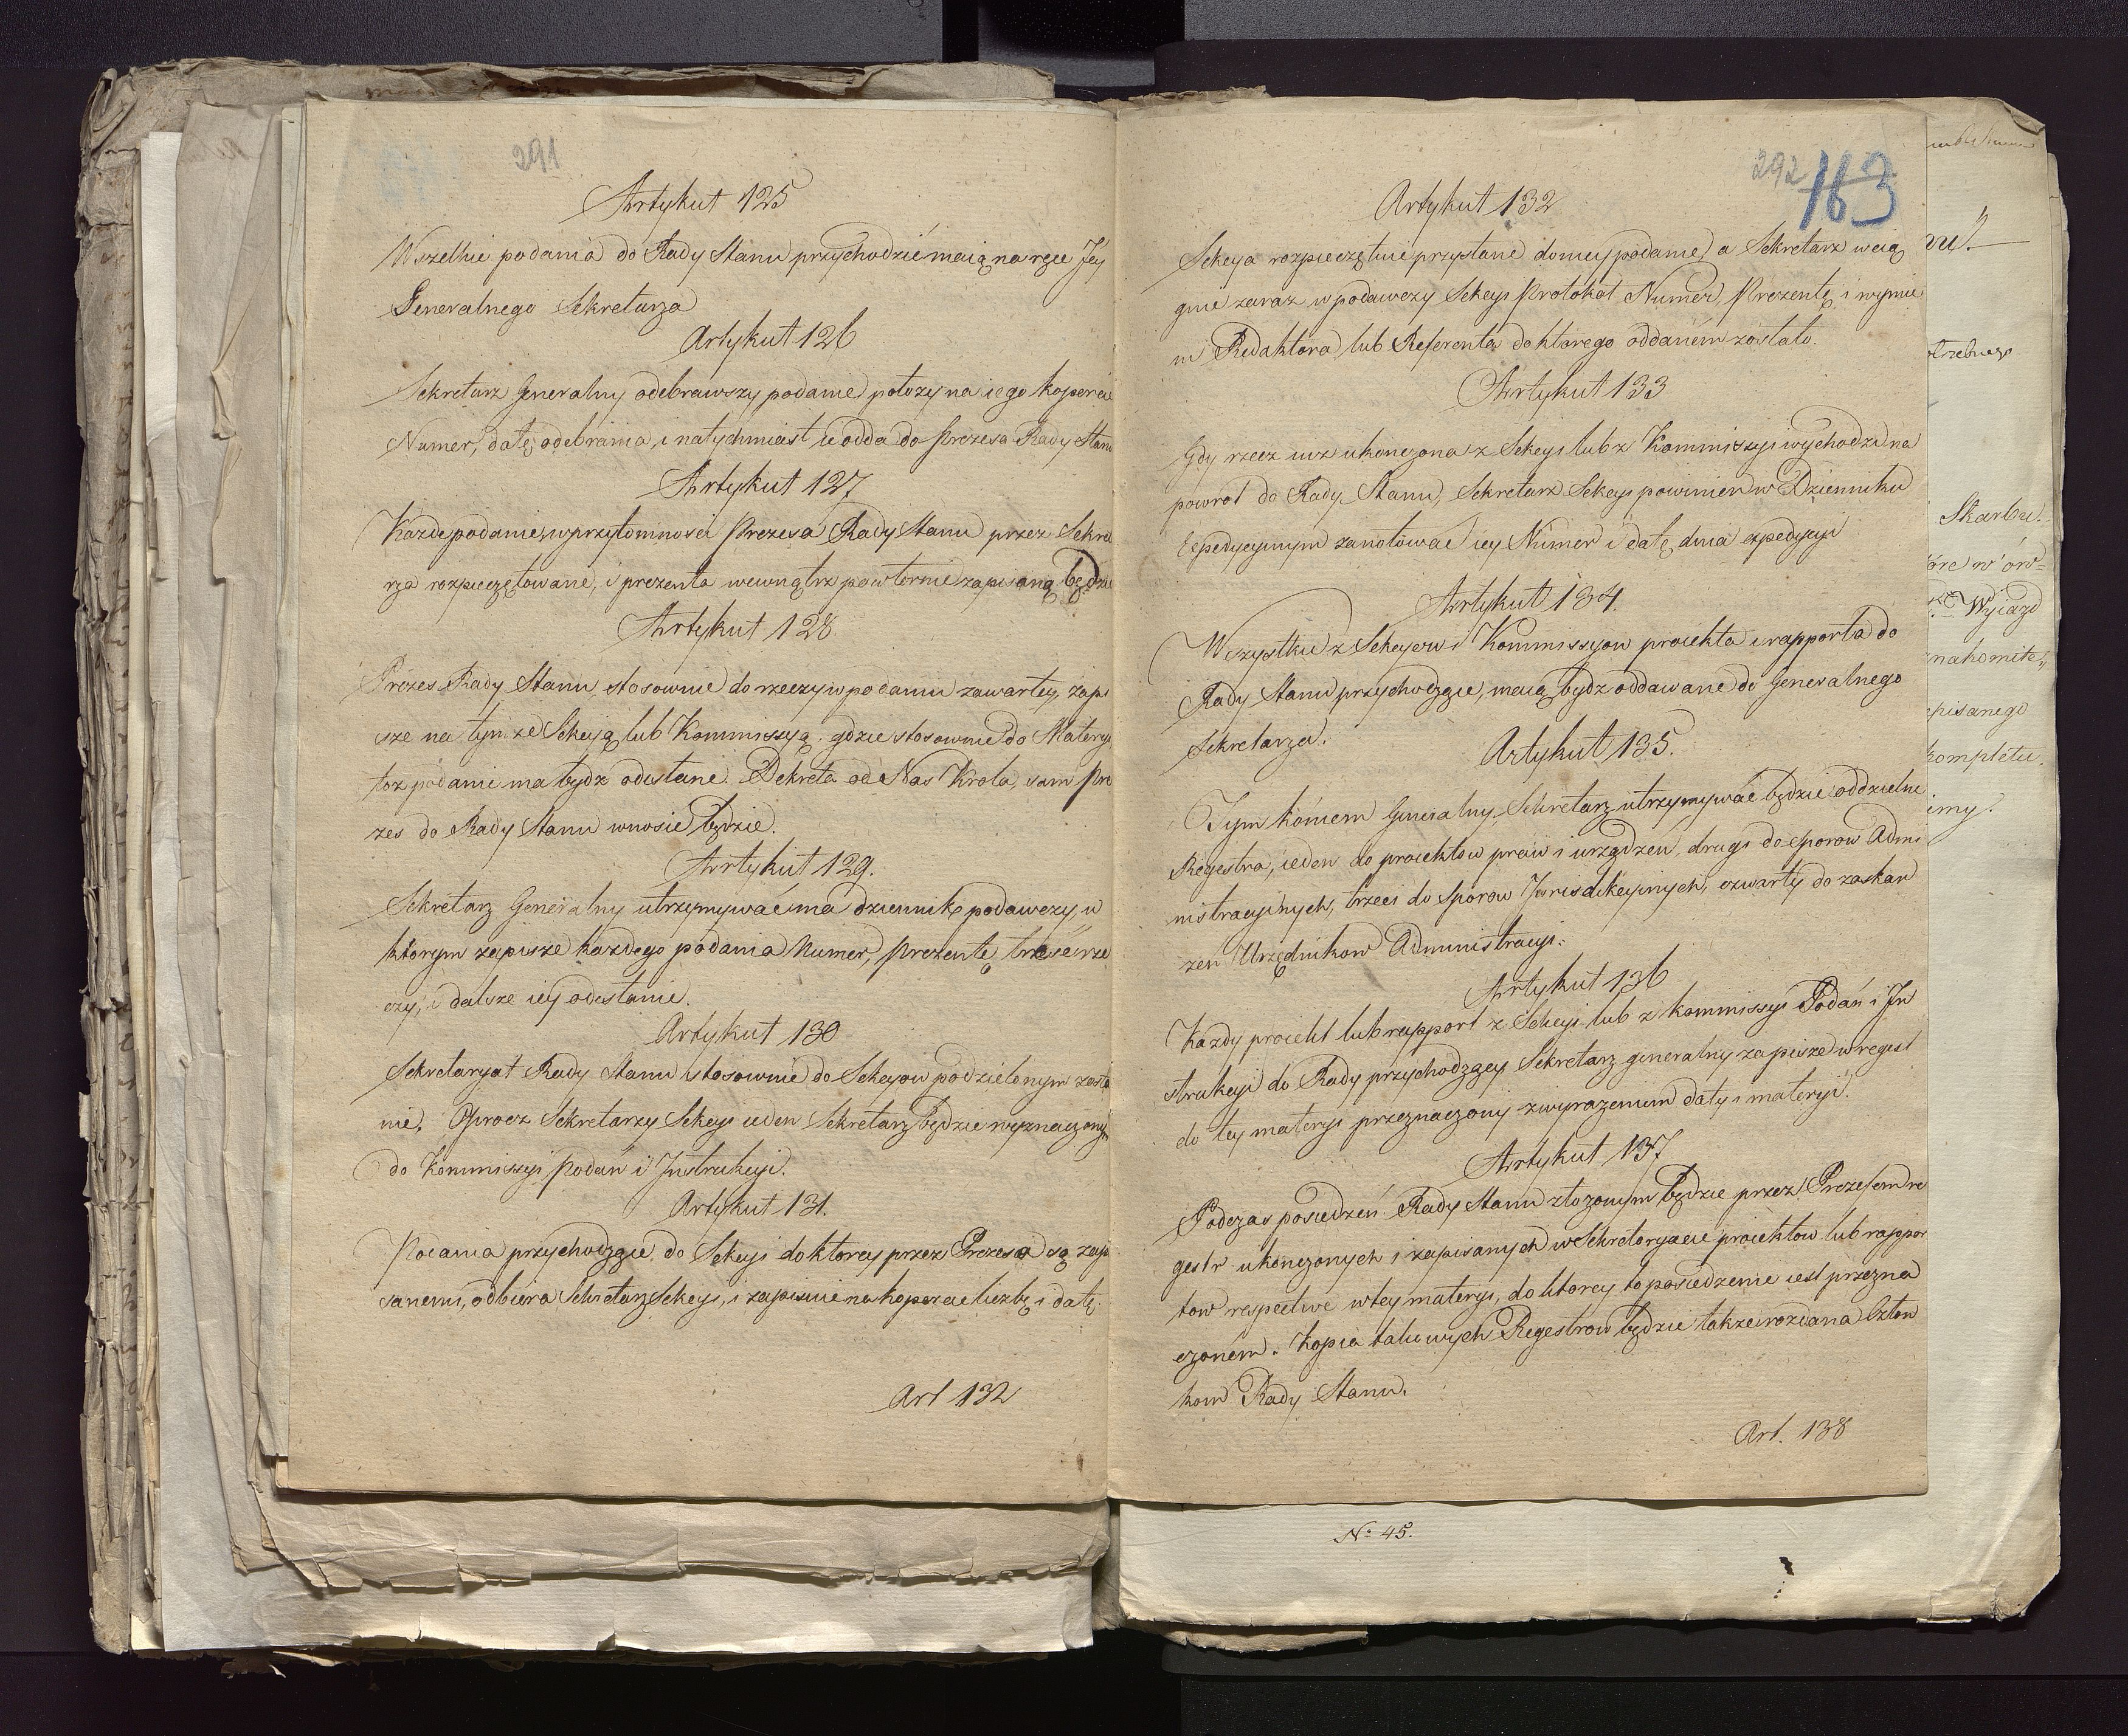 291
Artykuł 125
Wszelkie podania do Rady Stanu przychodzić maią na ręce Jey
Generalnego Sekretarza
Artykuł 126
Sekretarz Generalny odebrawszy podanie położy na iego koperci
Numer, datę odebrania, i natychmiast ie odda do Prezesa Rady Stanu
Artykuł 127
Każde podanie, w przytomności Prezesa Rady Stanu przez Sekre
rza rozpieczętowane, i prezenta wewnątrz powtornie zapisaną będzie
Artykuł 128
Prezes Rady Stanu, stosownie do rzeczy w podaniu zawartey, zapi
sze na tym ze Sekcyą lub Kommissyą, gdzie stosownie do Materyi
toż podanie ma bydz odesłane. Dekreta od Nas Krola, sam Pre
zes do Rady Stanu wnosić będzie.
Artykuł 129.
Sekretarz Generalny utrzymywać ma dziennik podawczy, w
którym zapisze każdego podania Numer, Prezentę, treść rze
czy, i dalsze iey odesłanie.
Artykuł 130
Sekretaryat Rady Stanu stosownie do Sekcyow podzielonym zosta
nie. Oprocz Sekretarzy Sekcyi ieden Sekretarz będzie wyznaczony
do Kommissyi Podań i Instrukcyi.
Artykuł 131.
Podania przychodzące do Sekcyi do ktorey przez Prezesa są zapi
sanemi, odbiera Sekretarz Sekcyi, i zapisuie na kopercie liczbę i datę.
Art 132
292 163
Artykuł 132
Sekcya rozpieczętuie przysłane do niey podanie, a Sekretarz wcią
gnie zaraz w podawczy Sekcyi Protokoł Numer, Prezentę i wymie
ni Redaktora lub Referenta do ktorego oddanem zostało.
Artykuł 133
Gdy rzecz iuż ukończona z Sekcyi lub z Kommissyi wychodzi na
powrot do Rady Stanu, Sekretarz Sekcyi powinien w Dzienniku
Expedycyinym zanotować iey Numer i datę dnia expedycyi
Artykuł 134.
Wszystkie z Sekcyow i Kommissyow proiekta i rapporta do
Rady Stanu przychodzące, maią bydz oddawane do Generalnego
Sekretarza.
Artykuł 135.
Tym końcem Generalny Sekretarz utrzymywać będzie oddzielne
Regestra, ieden do proiektow praw i urządzeń, drugi do sporow Admi
nistracyinych, trzeci do sporow Jurisdikcyinych, czwarty do zaskar
zen Urzędnikow Administracyi.
Artykuł 136
Każdy proiekt lub rapport z Sekcyi lub z kommissyi Podań i In
strukcyi do Rady przychodzący Sekretarz generalny zapisze w regest
do tey materyi przeznaczony z wyrażeniem daty i materyi.
Artykuł 137
Podczas posiedzeń Rady Stanu złożonym będzie przez Prezesem re
gestr ukonczonych i zapisanych w Sekretaryacie proiektow lub rappor
tow respective w tey materyi, do ktorey to posiedzenie iest przezna
czonem. Kopia takowych Regestrow będzie także rozdana Człon
kom Rady Stanu.
Art. 138
Skarbu.
Wyiazd
episanego
kompletu.
No 45.